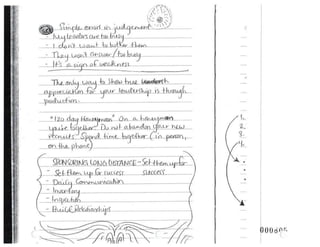 Simple errors in judgement
- My leaders are too busy
- I don't want to bother them
- They wont answer / too busy
- It's a sign of weakness
The only way to show true
appreciation for your leadership is through
production.
"120 day Honeymoon" On a honeymoon
you're together. Do not abandon your new
recruits. Spend time together (in person,
on the phone)
SPONSORING LONG DISTANCE - Set them up for
success
- Set them up for success
- Daily Communication
- Inventory
- Inspection
- Build Relationships
1.
2.
3.
4.